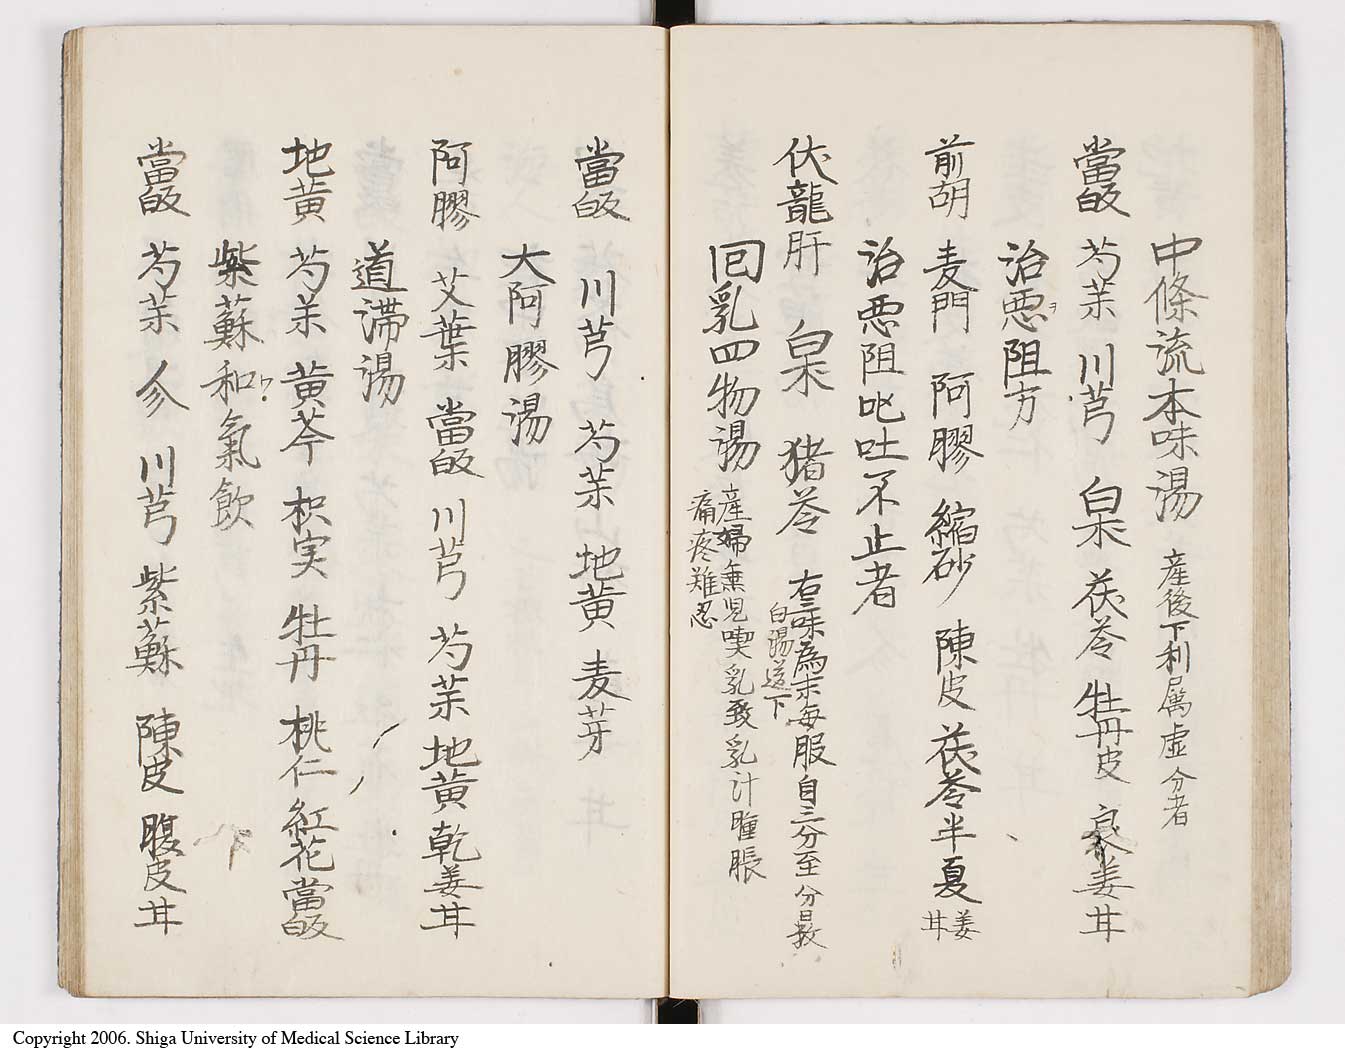 中條流本味湯 産後下利属虚分者
當皈 芍薬 川芎 白朮 茯苓 牡丹皮 良姜 甘
治悪阻方
前胡 麦門 阿膠 縮砂 陳皮 茯苓 半夏 姜甘
治悪阻吐不止者
伏龍肝 白朮 猪苓 右三味為末毎服自三分至 分
白湯送下
回乳四物湯 産婦無児喫乳致乳汁腫脹
痛疼難忍
當皈 川芎 芍薬 地黄 麦芽
大阿膠湯
阿膠 艾葉 當皈 川芎 芍薬 地黄 乾姜 甘
道滞湯
地黄 芍薬 黄芩 枳実 牡丹 桃仁 紅花 當皈
紫蘇和氣飲
當皈 芍薬 参 川芎 紫蘇 陳皮 腹皮 甘
Copyright 2006. Shiga University of Medical Science Library